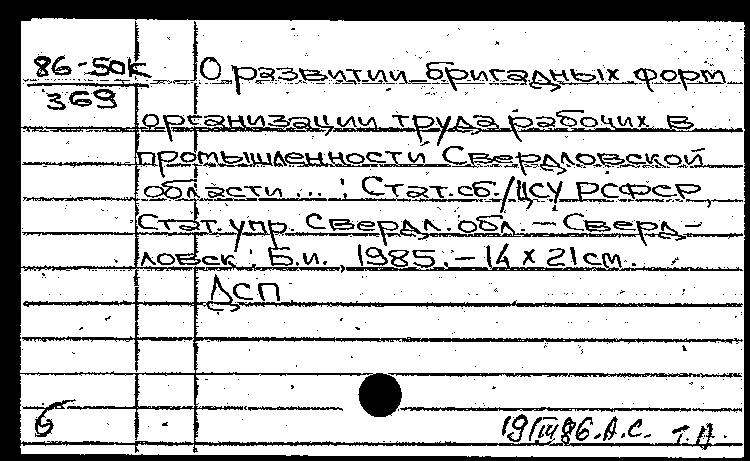 86-50К
369
О развитии бригадных форм
организации труда рабочих в
промышленности Свердловской
области ... : Стат. сб. / ЦСУ РСФСР,
Стат. упр. Свердл. обл. – Сверд-
ловск : Б.и., 1985. – 14 х 21 см.
ДСП
б
19/III 86. А.С. т.д.